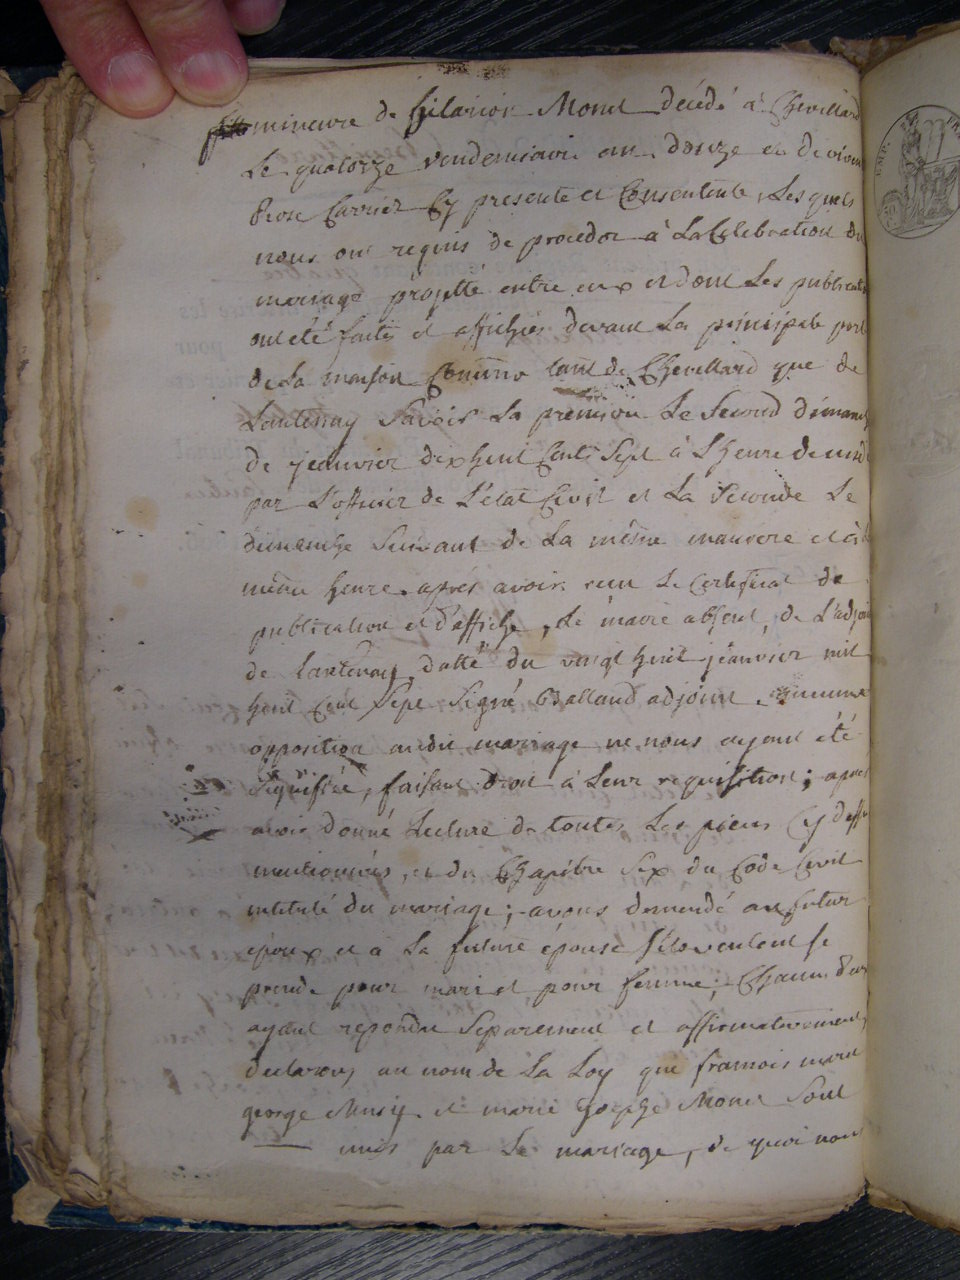 mineure de hilarion Monet décédé à Chevillard
Le quatorze vendemiaire an douze et de vivante
Rose Carrier Cy presente et Consentente, Les quels
nous ont requis de proceder à La Celebration du
mariage projetté entre eux et dont Les publications
ont été faites et affichées devant La principale porte
de La maison Comune tant de Chevillard que de
Lantenay Savoir La premiere Le Second dimanche
de jeanvier dix huit Cent Sept à L'heure de midi
par L'officier de L'état Civil et La Seconde Le
dimanche Suivant de La même maniere et à la
même heure. après avoir vu Le Certificat de
publication et d'affiche, de mairie absent, de L'adjoint
de Lantenay datté du vingt huit jeanvier mil
huit Cent Sept Signé Balland adjoint. aucune
opposition audit mariage ne nous ayant été
Signifiée, faisant droit à Leur requisition; après
avoir donné Lecture de toutes Les pieces Cy dessus
mentionnées, et du Chapitre Six du Code Civil
intitulé du mariage; avons demandé au futur
époux et à La future épouse s'ils veulent se
prendre pour mari et pour femme; Chacun d'eux
ayant repondu Separement et affirmativement,
declarons au nom de La Loy que francois marie
george Musy et marie Josephe Monet Sont
unis par Le mariage, de quoi nous
EMP. FRA